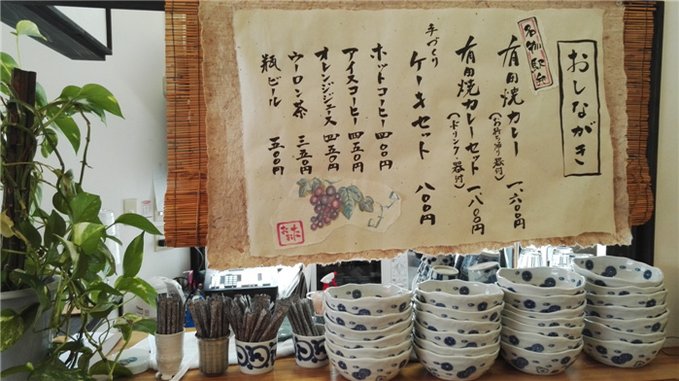 おしながき
名物駅弁
有田焼カレー 一、六〇〇円
(お持ち帰り器付)
有田焼カレーセット 一、八〇〇円
(ドリンク・器付)
手づくり
ケーキセット 八〇〇円
ホットコーヒー 四〇〇円
アイスコーヒー 四五〇円
オレンジジュース 四五〇円
ウーロン茶 三五〇円
瓶ビール 五〇〇円